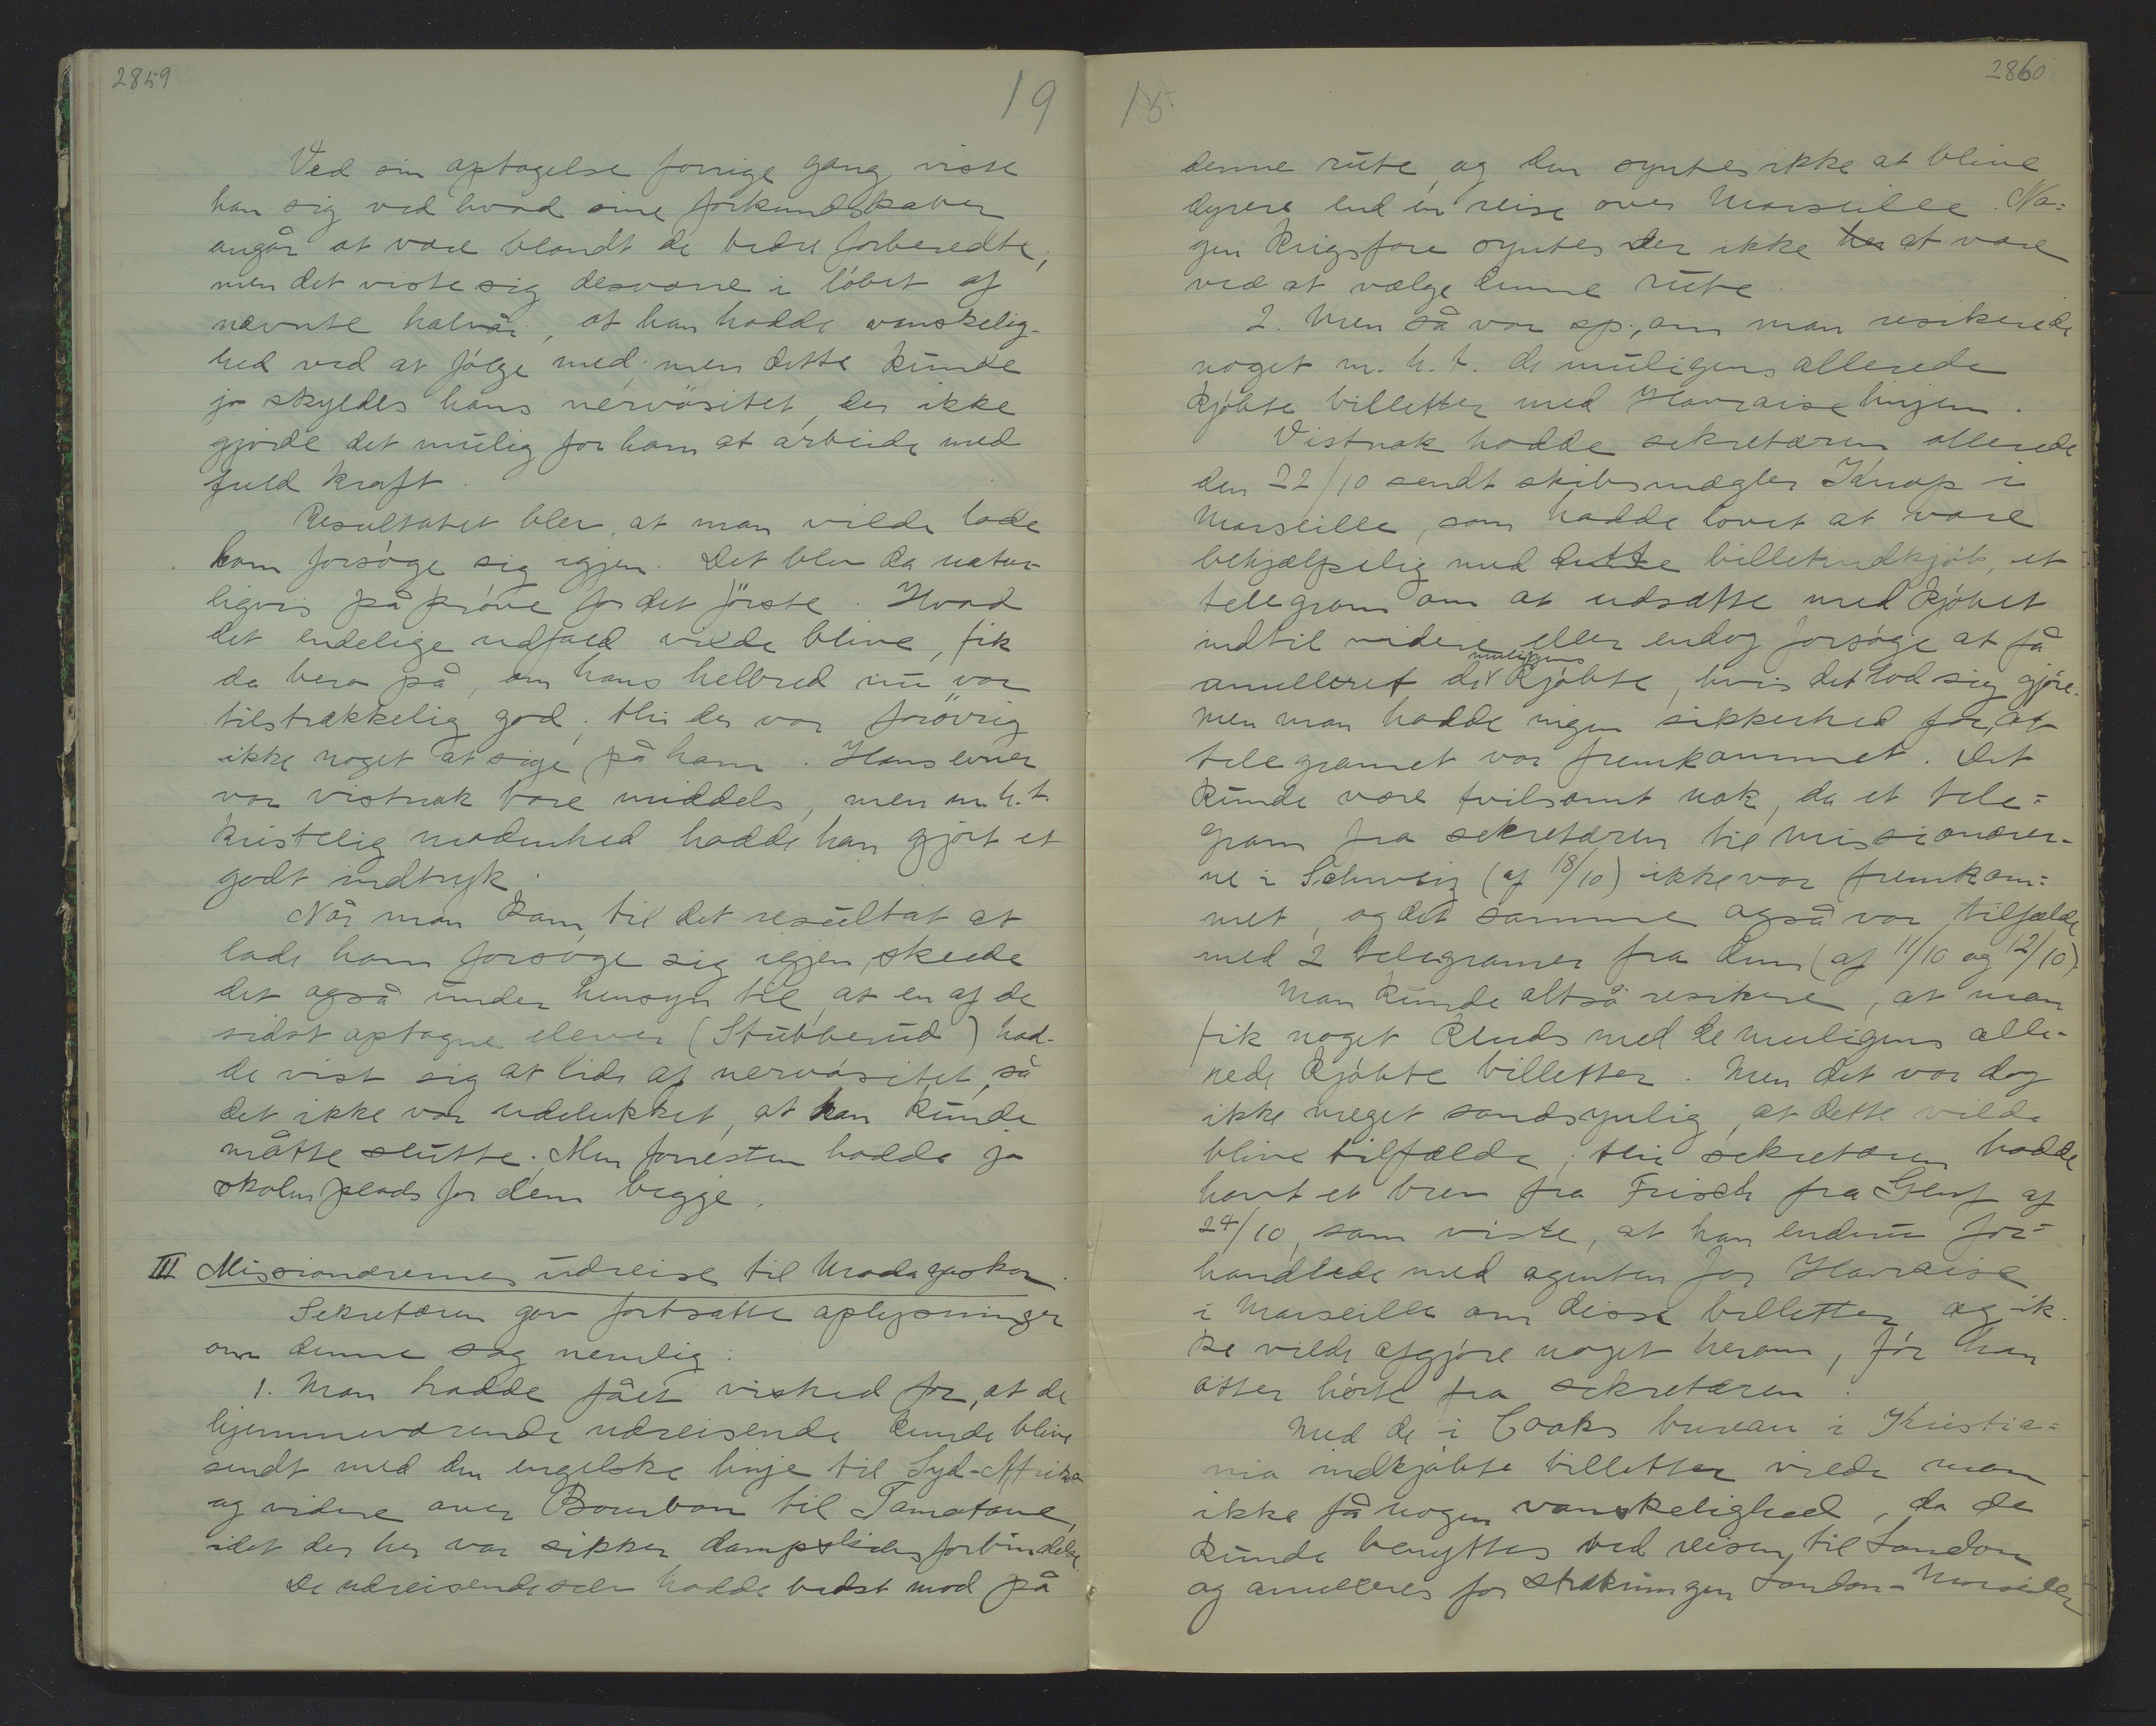 2859
19
Ved sin optagelse forrige gang viste
han sig ved hvad sine forkundskaber
angår at være blandt de bedre forberedte,
men det viste sig desværre i løbet af
nævnte halvår, at han hadde vanskelig-
hed ved at følge med; men dette kunde
jo skyldes hans nervøsitet, der ikke
gjorde det mulig for ham at arbeide med
fuld kraft.
Resultatet blev, at man vilde lade
ham forsøge sig igjen. Det blev da natur-
ligvis på prøve for det første. Hvad
det endelige udfald vilde blive, fik
da bero på, om hans helbred nu var
tilstrækkelig god; thi der var forøvrig
ikke noget at sige på ham. Hans evner
var vistnok bare middels, men m.h.t.
kristelig modenhed hadde han gjort et
godt indtryk.
Når man kom til det resultat at
lade ham forsøge sig igjen, skeede
det også under hensyn til, at en af de
sidst optagne elever (Stubberud) had-
de vist sig at lide af nervøsitet, så
det ikke var udelukket, at han kunde
måtte slutte. Men forresten hadde jo
skolen plads for dem begge.
III Missionærernes udreise til Madagaskar.
Sekretæren gav fortsatte oplysninger
om denne sag nemlig:
1. Man hadde fået vished for, at de
hjemmeværende udreisende kunde blive
sendt med den engelske linje til Syd-Afrika
og videre over Bourbon til Tamatave,
idet der her var sikker dampskibsforbindelse.
De udreisende selv hadde bedst mod på
15
2860
denne rute, og den syntes ikke at blive
dyrere end en reise over Marseille. No-
gen krigsfare syntes der ikke her at være
ved at vælge denne rute.
2. Men så var sp., om man resikerede
noget m.h.t. de muligens allerede
kjøbte billetter med Havraiselinjen.
Vistnok hadde sekretæren allerede
den 22/10 sendt skibsmægler Knap i
Marseille, som hadde lovet at være
behjælpelig med dette billetindkjøb, et
telegram om at udsætte med kjøbet
indtil videre eller endog forsøge at få
muligens
annulleret de kjøbte, hvis det lod sig gjøre.
men man hadde ingen sikkerhed for, at
telegrammet var fremkommet. Det
kunde være tvilsomt nok, da et tele-
gram fra sekretæren til missionærer-
ne i Schweiz (af 18/10) ikke var fremkom-
met, og det samme også var tilfælde
med 2 telegramer fra dem (af 11/10 og 12/10).
Man kunde altså resikere, at man
fik noget kluds med de muligens alle-
rede kjøbte billetter. Men det var dog
ikke meget sandsynlig, at dette vilde
blive tilfælde; thi sekretæren hadde
havt et brev fra Frisch fra Genf af
24/10, som viste, at han endnu for-
handlede med agenten for Havraise
i Marseille om disse billetter og ik-
ke vilde afgjøre noget herom, før han
atter hørte fra sekretæren.
Med de i Cooks bureau i Kristia-
nia indkjøbte billetter vilde man
ikke få nogen vanskelighed, da de
kunde benyttes ved reisen til London
og annulleres for strækningen London-Marseille